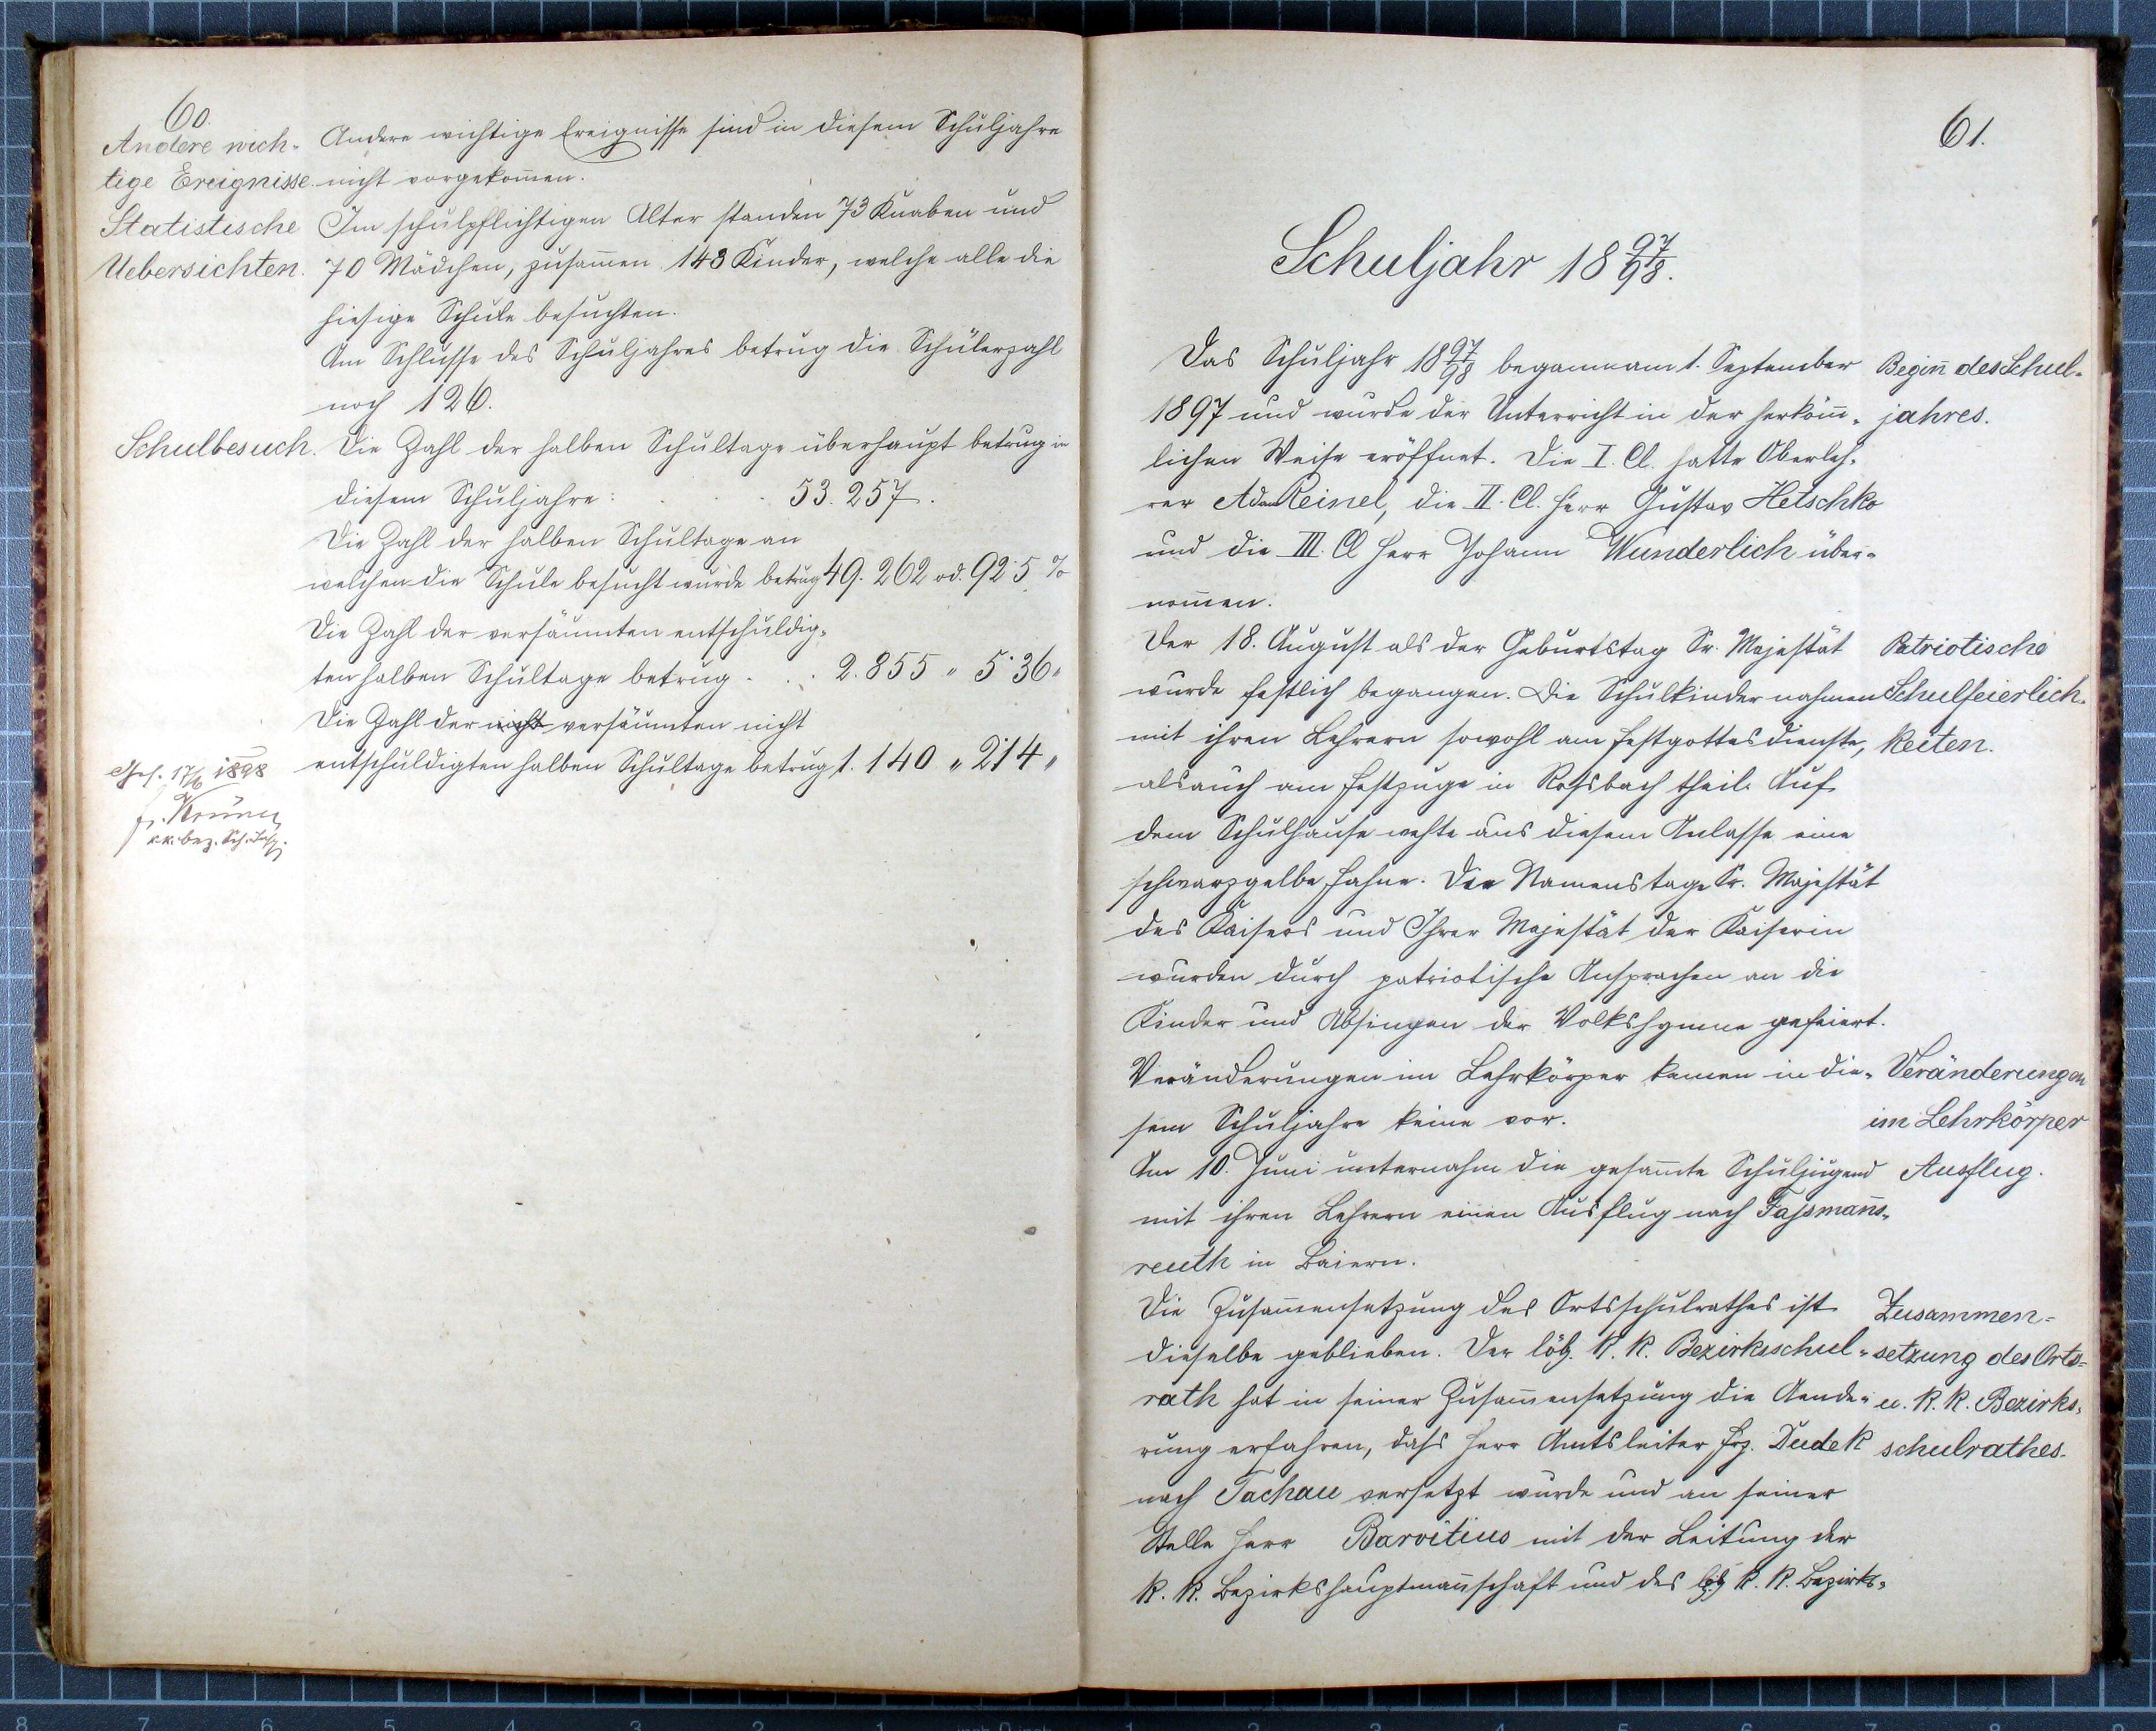 60.
Andere wich-
tige Ereignisse.
Andere wichtige Ereignisse sind in diesem Schuljahre
nicht vorgekom̄en.
Statistische
Uebersichten.
Im schulpflichtigen Alter standen 73 Knaben und
70 Mädchen, zusam̄en 143 Kinder, welche alle die
hiesige Schule besuchten.
Am Schlusse des Schuljahres betrug die Schülerzahl
noch 126.
Schulbesuch.
Die Zahl der halben Schultage überhaupt betrug in
diesem Schuljahre: . . . 53.257.
Die Zahl der halben Schultage an
welchen die Schule besucht wurde betrug 49.262 od. 92·5 %
Die Zahl der versäumten entschuldig-
ten halben Schultage betrug . . . 2.855 " 5·36 "
Die Zahl der nicht versäumten nicht
entschuldigten halben Schultage betrug 1.140 " 2·14 "
Ges. 17/6 1898
k.k. Bez. Sch. Insp.
61.
Schuljahr 1897/98.
Das Schuljahr 1897/98 begann am 1. September
1897 und wurde der Unterricht in der herköm̄-
lichen Weise eröffnet. Die I. Cl. hatte Oberleh-
rer Adam Reinel, die II. Cl. Herr Gustav Hetschko
und die III. Cl Herr Johann Wunderlich über-
nom̄en.
Begin̄ des Schul-
jahres.
Der 18. August als der Geburtstag Sr. Majestät
wurde festlich begangen. Die Schulkinder nahmen
mit ihren Lehrern sowohl am Festgottesdienste,
als auch am Festzuge in Roßbach theil. Auf
dem Schulhause wehte aus diesem Anlasse eine
schwarzgelbe Fahne. Die Namenstage Sr. Majestät
des Kaisers und Ihrer Majestät der Kaiserin
wurden durch patriotische Ansprachen an die
Kinder und Absingen der Volkshymne gefeiert.
Patriotische
Schulfeierlich-
keiten.
Veränderungen im Lehrkörper kamen in die-
sem Schuljahre keine vor.
Veränderungen
im Lehrkörper
Am 10. Juni unternahm die gesam̄te Schuljugend
mit ihren Lehrern einen Ausflug nach Faßman̄s-
reuth in Baiern.
Ausflug.
Die Zusam̄ensetzung des Ortsschulrathes ist
dieselbe geblieben. Der löb. k. k. Bezirksschul-
rath hat in seiner Zusam̄ensetzung die Aende-
rung erfahren, daß Herr Amtsleiter Frz. Dudek
nach Tachau versetzt wurde und an seiner
Stelle Herr Barvitius mit der Leitung der
k. k. Bezirkshauptman̄schaft und des löb k. k. Bezirks-
Zusammen-
setzung des Orts-
u. k. k. Bezirks-
schulrathes.